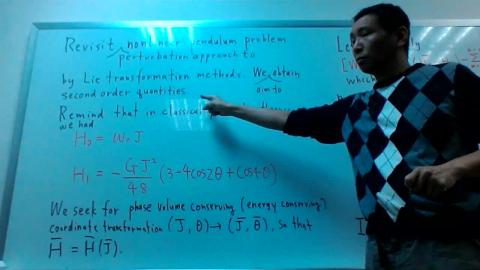 Revisit nonlinear pendulum problem
perturbation approach to
by Lie transformation methods. We obtain
aim to
second order quantities.
Remind that in classical
we had
H₀ = ω₀J
H₁ = -GJ²/48 (3-4cos2θ+cos4θ)
We seek for phase volume conserving (energy conserving)
coordinate transformation (J, θ) → (J̄, θ̄), so that
H̄ = H̄(J̄).
which